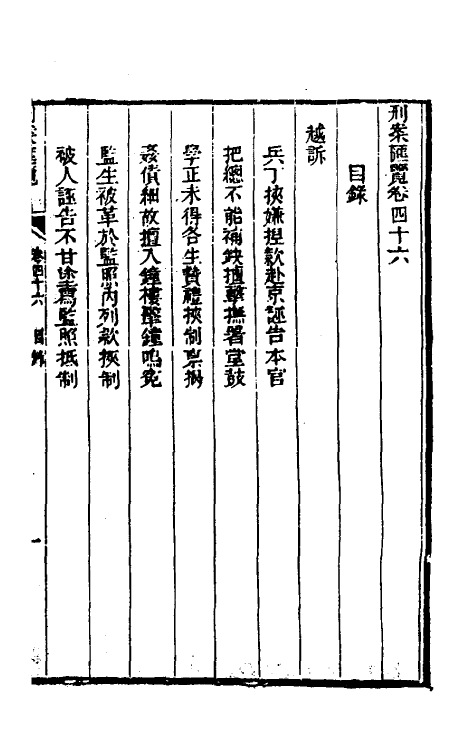 刑案匯覽卷四十六
目錄
越訴
兵丁挾嫌揑款赴京誣告本官
把總不能補缺擅擊撫署堂鼓
學正未得各生贄禮挾制禀揭
姦債細故擅入鐘樓撃鐘鳴冤
監生被革於監照內列款挾制
被人誣告不甘塗寫監照抵制
卷四十六 目錄 一